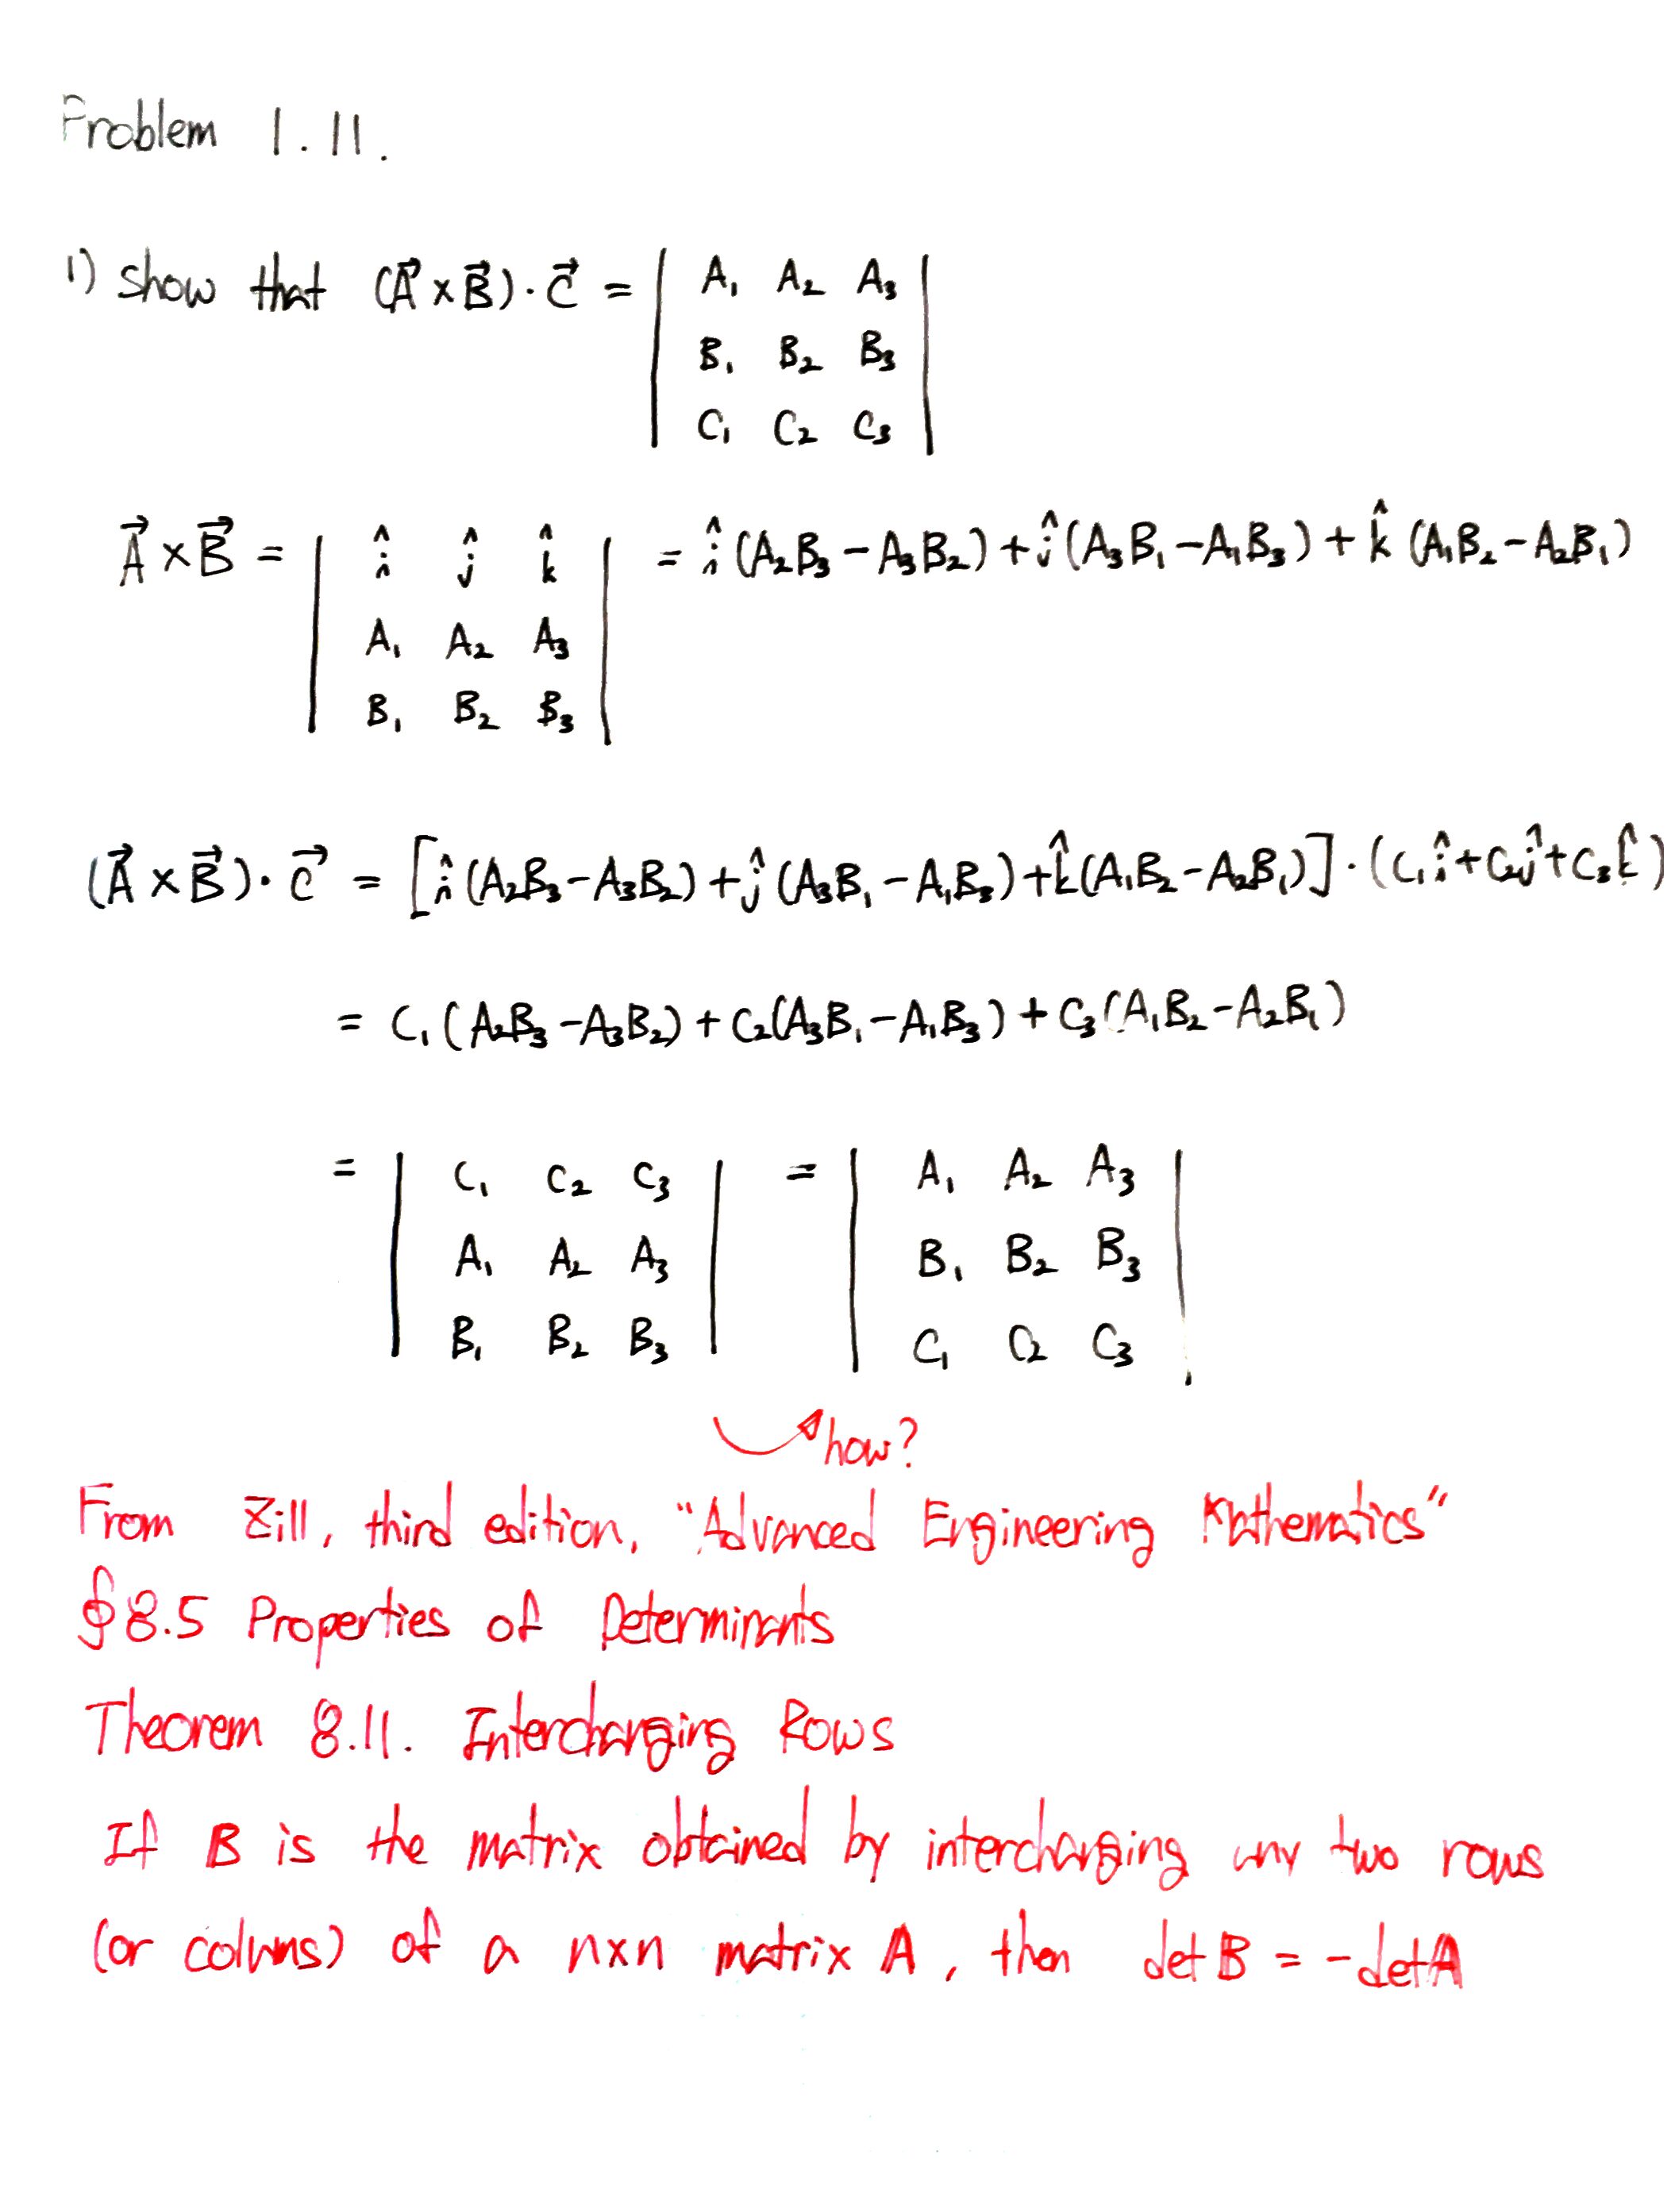 Problem 1.11.
1) show that (A⃗ × B⃗)·C⃗ = | A₁ A₂ A₃ |
| B₁ B₂ B₃ |
| C₁ C₂ C₃ |
A⃗ × B⃗ = | î ĵ k̂ | = î (A₂B₃ - A₃B₂) + ĵ (A₃B₁ - A₁B₃) + k̂ (A₁B₂ - A₂B₁)
| A₁ A₂ A₃ |
| B₁ B₂ B₃ |
(A⃗ × B⃗)·C⃗ = [î (A₂B₃ - A₃B₂) + ĵ (A₃B₁ - A₁B₃) + k̂ (A₁B₂ - A₂B₁)]·(C₁î + C₂ĵ + C₃k̂)
= C₁(A₂B₃ - A₃B₂) + C₂(A₃B₁ - A₁B₃) + C₃(A₁B₂ - A₂B₁)
= | C₁ C₂ C₃ | = | A₁ A₂ A₃ |
| A₁ A₂ A₃ | | B₁ B₂ B₃ |
| B₁ B₂ B₃ | | C₁ C₂ C₃ |.
how?
From Zill, third edition, "Advanced Engineering Mathematics"
§8.5 Properties of Determinants
Theorem 8.11. Interchanging Rows
If B is the matrix obtained by interchanging any two rows
(or colums) of a n×n matrix A, then det B = -det A